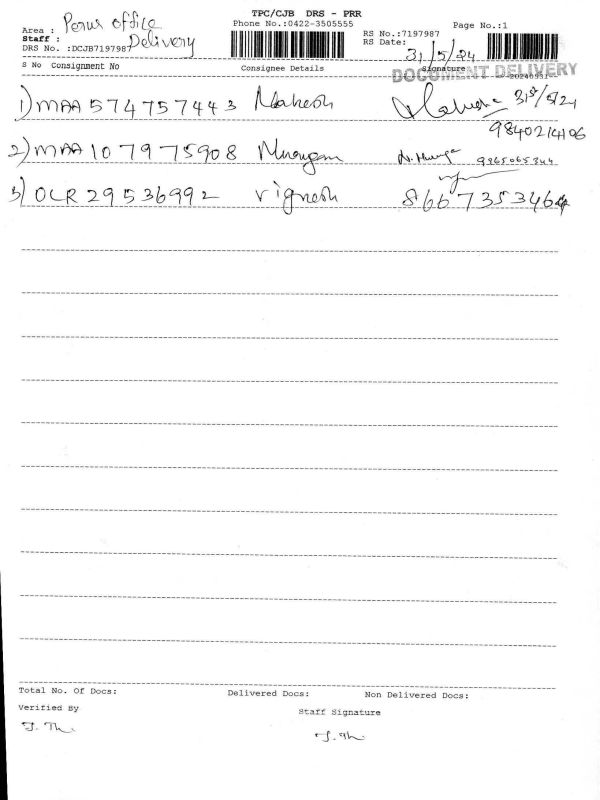 TPC/CJB DRS - PRR
Phone No.:0422-3505555
Page No.:1
Area : Perur office
Staff : Delivery
DRS No. :DCJB7197987
RS No.:7197987
RS Date: 31/5/24
S No Consignment No Consignee Details Signature
DOCUMENT DELIVERY
1) MAA 574757443 Mahesh 31st/5/24
9840214106
2) MAA 107975908 Murugan 9865065344
3) OCR 29536992 Vignesh 8667353464
Total No. Of Docs: Delivered Docs: Non Delivered Docs:
Verified By Staff Signature